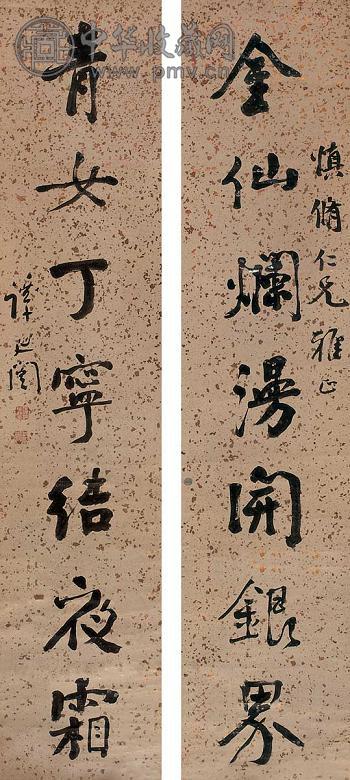 中华收藏网
www.pmv.cn
慎脩仁兄雅正
金仙爛漫開銀界
青女丁寧結夜霜
譚延闓